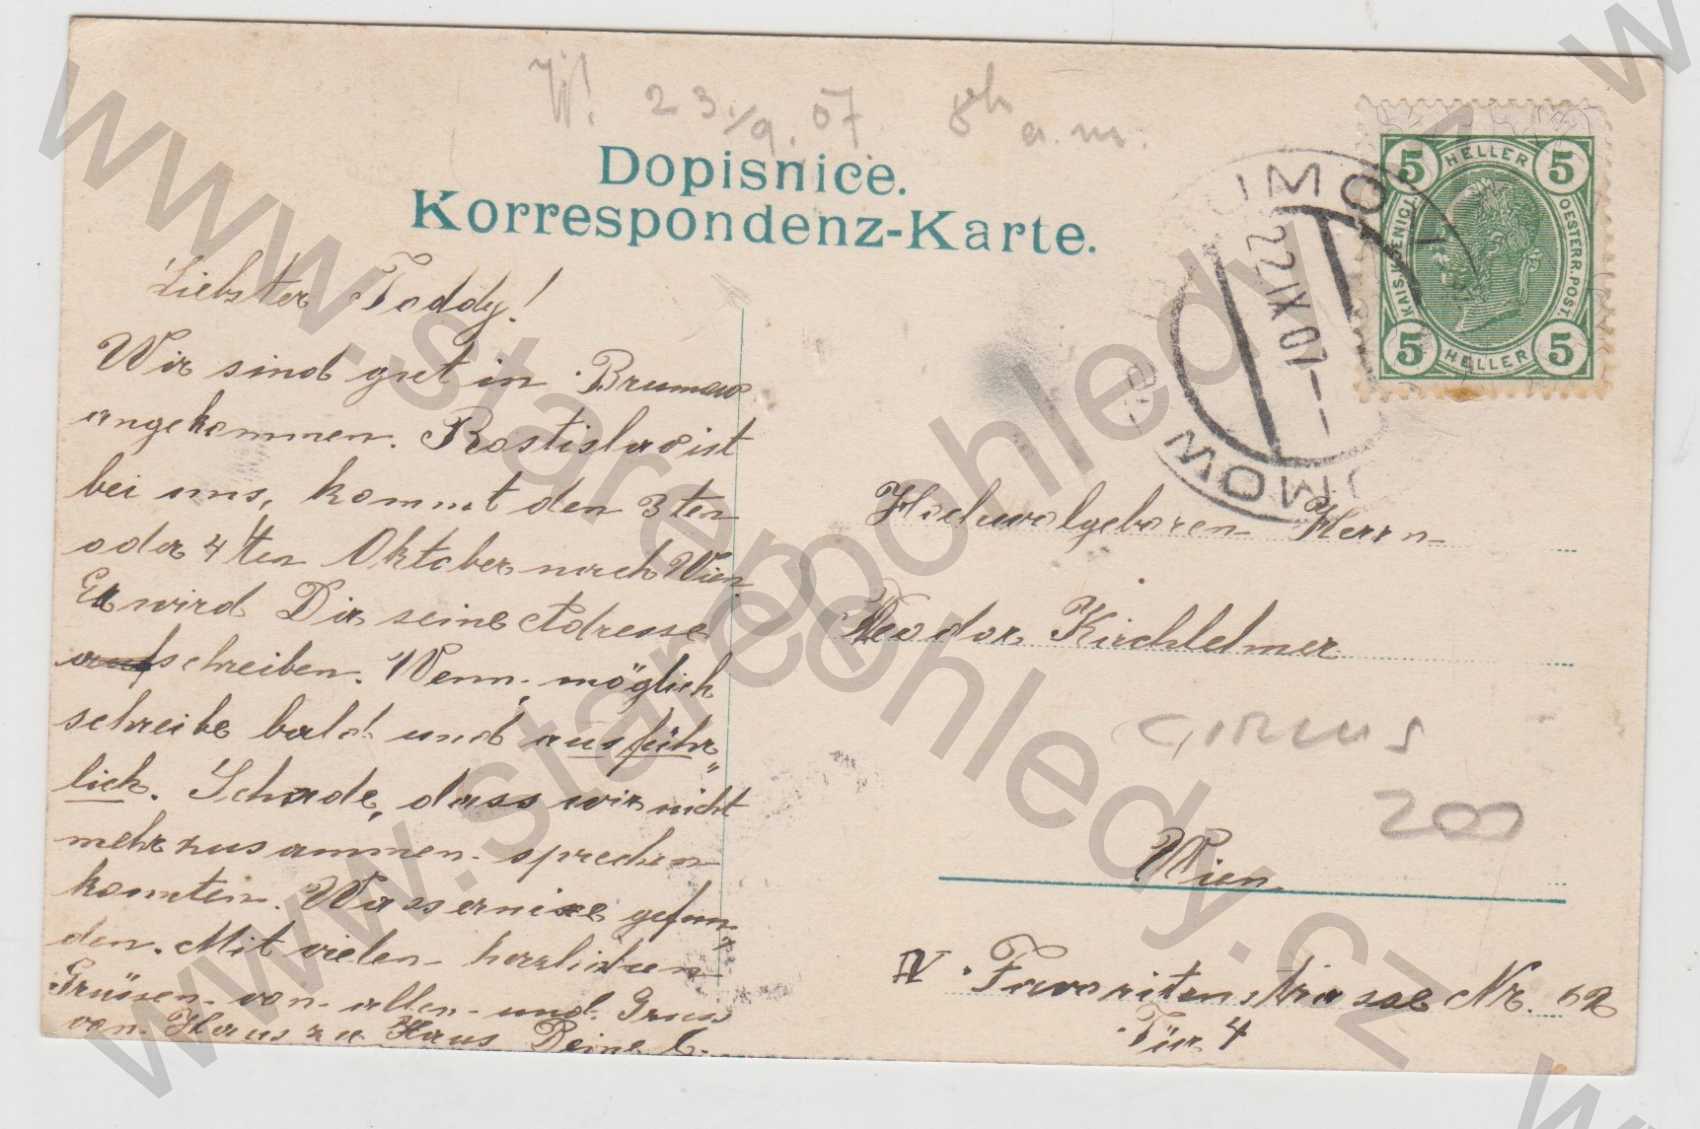 W! 23./9. 07. a.m.
Dopisnice.
Korrespondenz-Karte.
5 HELLER 5
KAIS. KOENIGL. OESTERR. POST
5 HELLER 5
UMOW
22 IX 07
UMOW
Liebster Teddy!
Wir sind gut in Brumow
angekommen. Rostislav ist
bei uns, kommt den 3ten
oder 4ten Oktober nach Wien.
Er wird Dir seine Adresse
schreiben. Wenn möglich
schreibe bald und ausführ„
lich. Schade, dass wir nicht
mehr zusammen sprechen
konnten. gefun„
den. Mit vielen herzlichen
Grüssen von allen und Gruss
von Haus zu Haus Deine E.
Hochwolgeboren Herrn
Teodor Kirchlehner
CIRCUS
200
Wien
IV. Favoritenstrasse Nr. 62
Tür 4
www.starepohledy.cz
www.starepohledy.cz